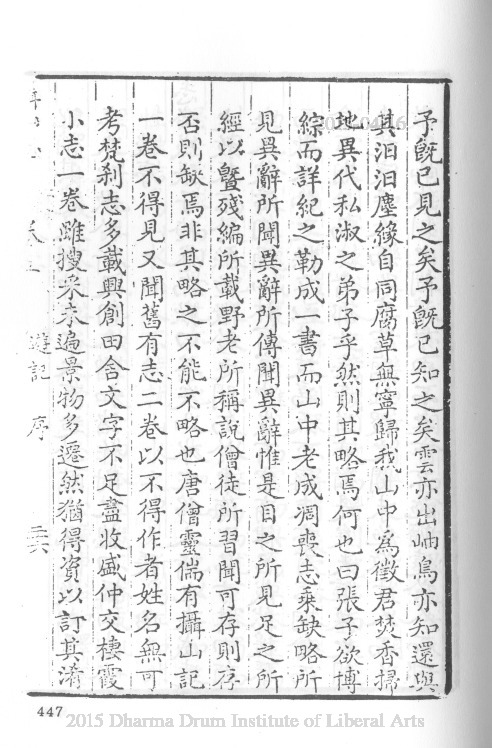 予旣已見之矣予旣已知之矣雲亦出岫鳥亦知還與
其汩汩塵緣自同腐草無寧歸我山中爲徵君焚香掃
地異代私淑之弟子乎然則其略焉何也曰張子欲博
綜而詳紀之勒成一書而山中老成凋喪志乘缺略所
見異辭所聞異辭所傳聞異辭惟是目之所見足之所
經以曁殘編所載野老所稱說僧徒所習聞可存則存
否則缺焉非其略之不能不略也唐僧靈偳有攝山記
一卷不得見又聞舊有志二卷以不得作者姓名無可
考梵刹志多載興創田舍文字不足盡收盛仲交棲霞
小志一卷雖搜采未遍景物多遷然猶得資以訂其淆
遊記 序
447
2015 Dharma Drum Institute of Liberal Arts